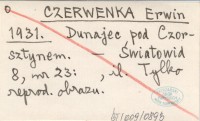 CZERWENKA Erwin
1931. Dunajec pod Czor-
sztynem. — Światowid
8, nr 23: , il. Tylko
reprod. obrazu.